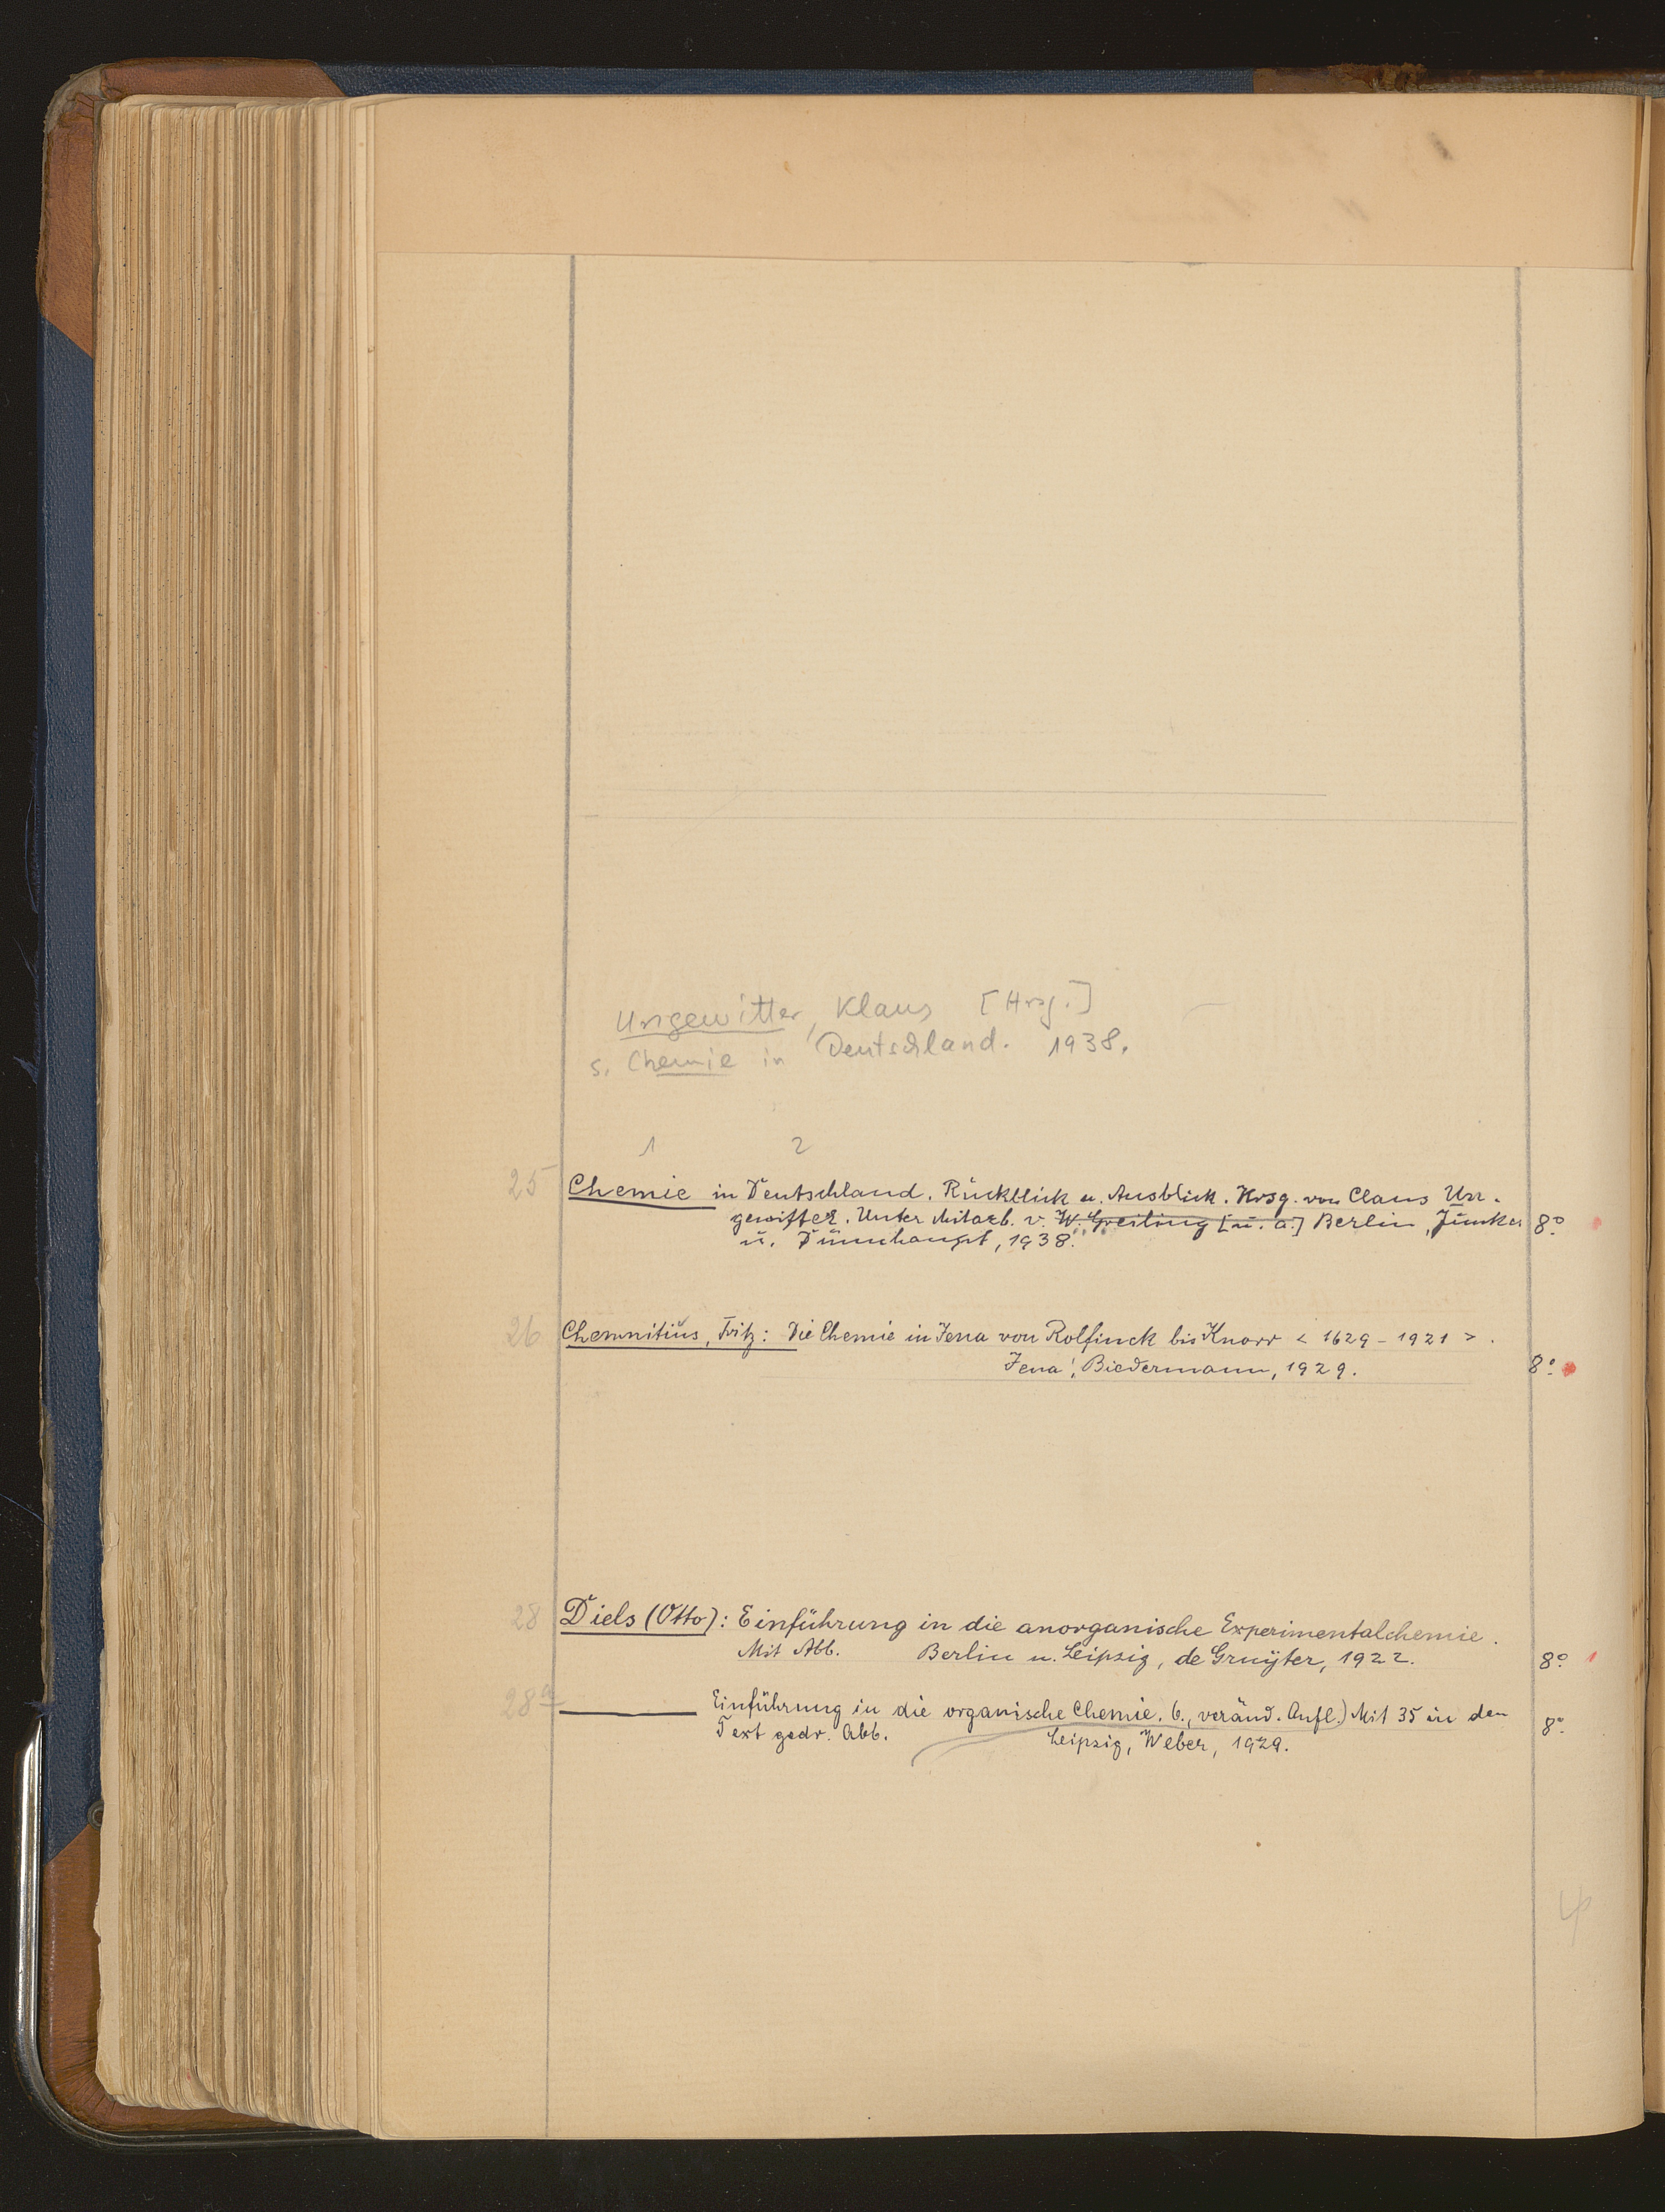 Ungewitter, Klaus [Hrsg.]
s. Chemie in Deutschland. 1938.
1 2
25 Chemie in Deutschland. Rückblick u. Ausblick. Hrsg. von Claus Un-
gewitter. Unter Mitarb. v. W. Greiling [u. a.] Berlin, Junker 8°
u. Dünnhaupt, 1938.
26 Chemnitius, Fritz: Die Chemie in Jena von Rolfinck bis Knorr < 1629 - 1921 > .
Jena: Biedermann, 1929. 8°
28 Diels (Otto): Einführung in die anorganische Experimentalchemie.
Mit Abb. Berlin u. Leipzig, de Gruyter, 1922. 8°
28a ——— Einführung in die organische Chemie. 6., veränd. Aufl.) Mit 35 in den
Text gedr. Abb. Leipzig, Weber, 1929. 8°